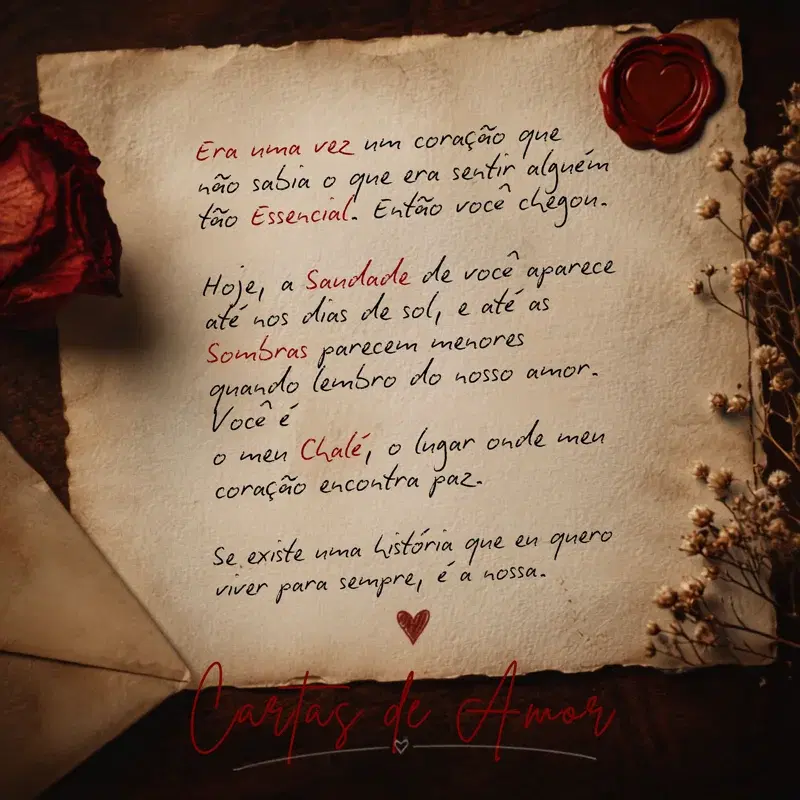 Era uma vez um coração que
não sabia o que era sentir alguém
tão Essencial. Então você chegou.
Hoje, a Saudade de você aparece
até nos dias de sol, e até as
Sombras parecem menores
quando lembro do nosso amor.
Você é
o meu Chalé, o lugar onde meu
coração encontra paz.
Se existe uma história que eu quero
viver para sempre, é a nossa.
Cartas de Amor